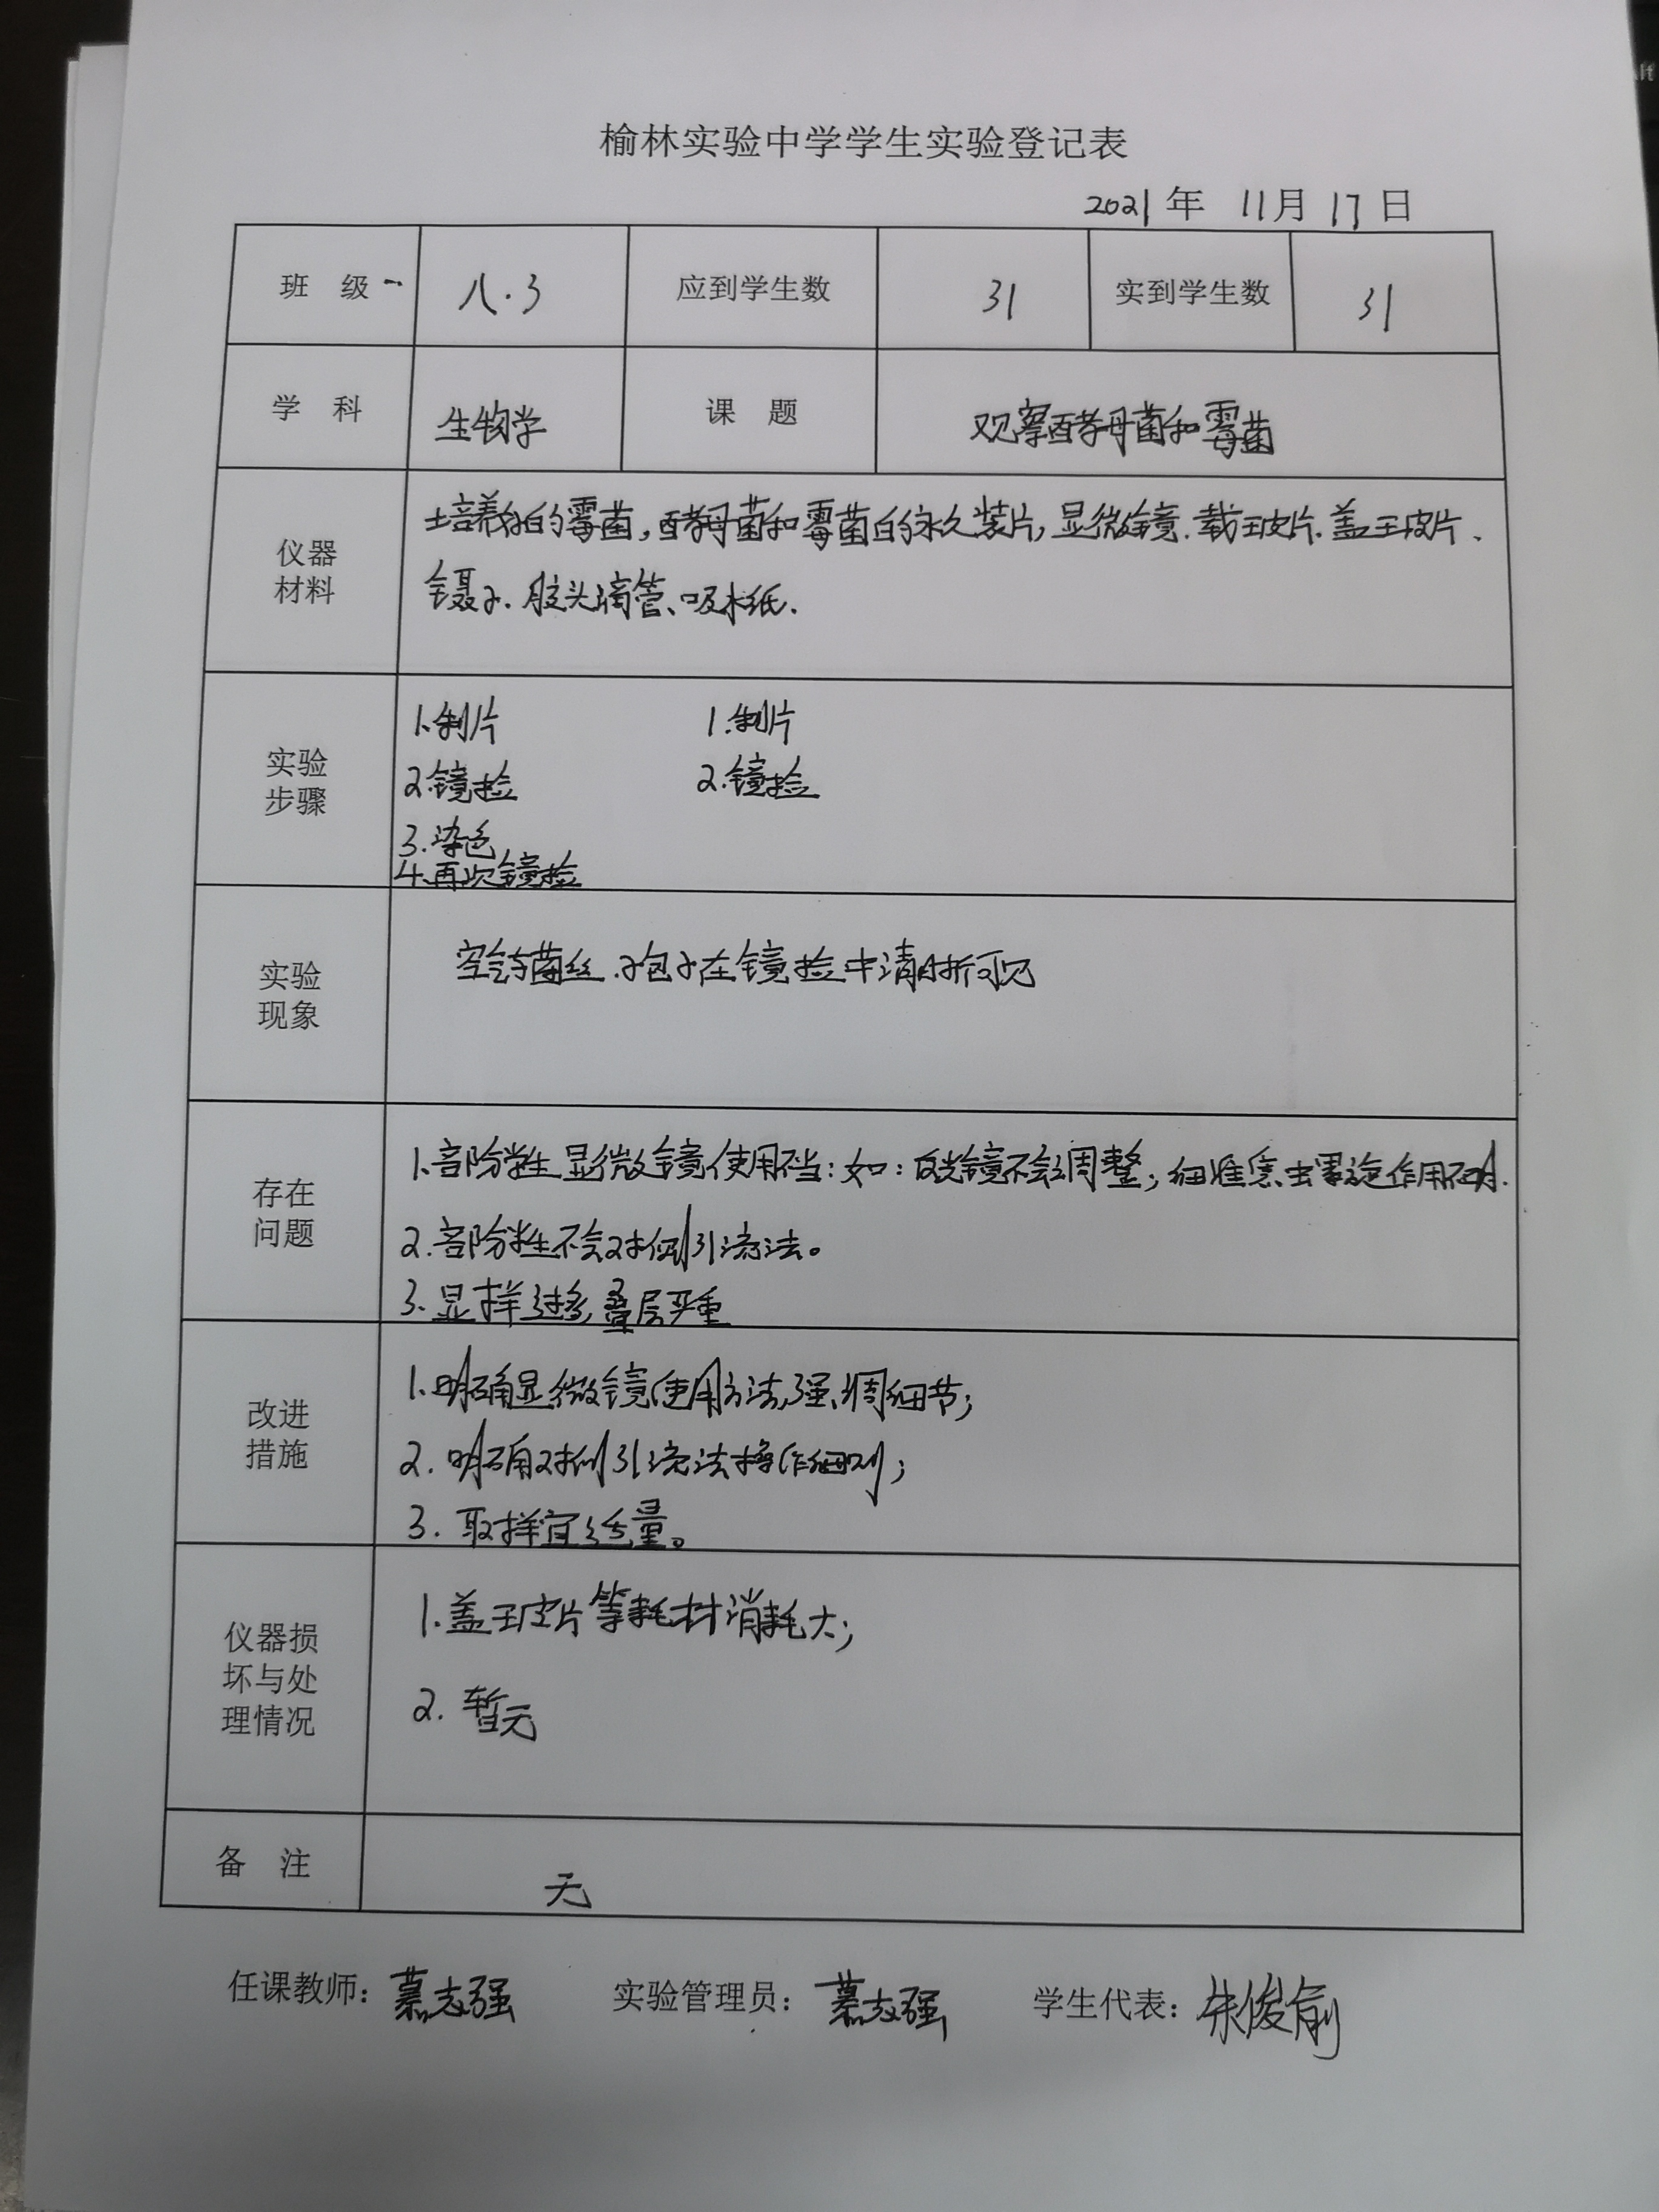 榆林实验中学学生实验登记表
2021年 11月 17日
班 级 八.3 应到学生数 31 实到学生数 31
学 科 生物学 课 题 观察酵母菌和霉菌
仪器
材料
培养好的霉菌,酵母菌和霉菌的永久装片,显微镜.载玻片.盖玻片、
镊子.胶头滴管、吸水纸.
实验
步骤
1.制片 1.制片
2.镜检 2.镜检
3.染色
4.再次镜检
实验
现象
菌丝.孢子在镜检中清晰可见
存在
问题
1.部份学生显微镜使用不当:如:反光镜不会调整;细准焦螺旋作用不明.
2.部份学生不会对侧引流法。
3.显样过多,叠层严重
改进
措施
1.明确显微镜使用方法,强调细节;
2.明确对侧引流法操作细则;
3.取样宜适量。
仪器损
坏与处
理情况
1.盖玻片等耗材消耗大;
2.暂无
备 注 无
任课教师:慕志强 实验管理员:慕志强 学生代表:朱俊